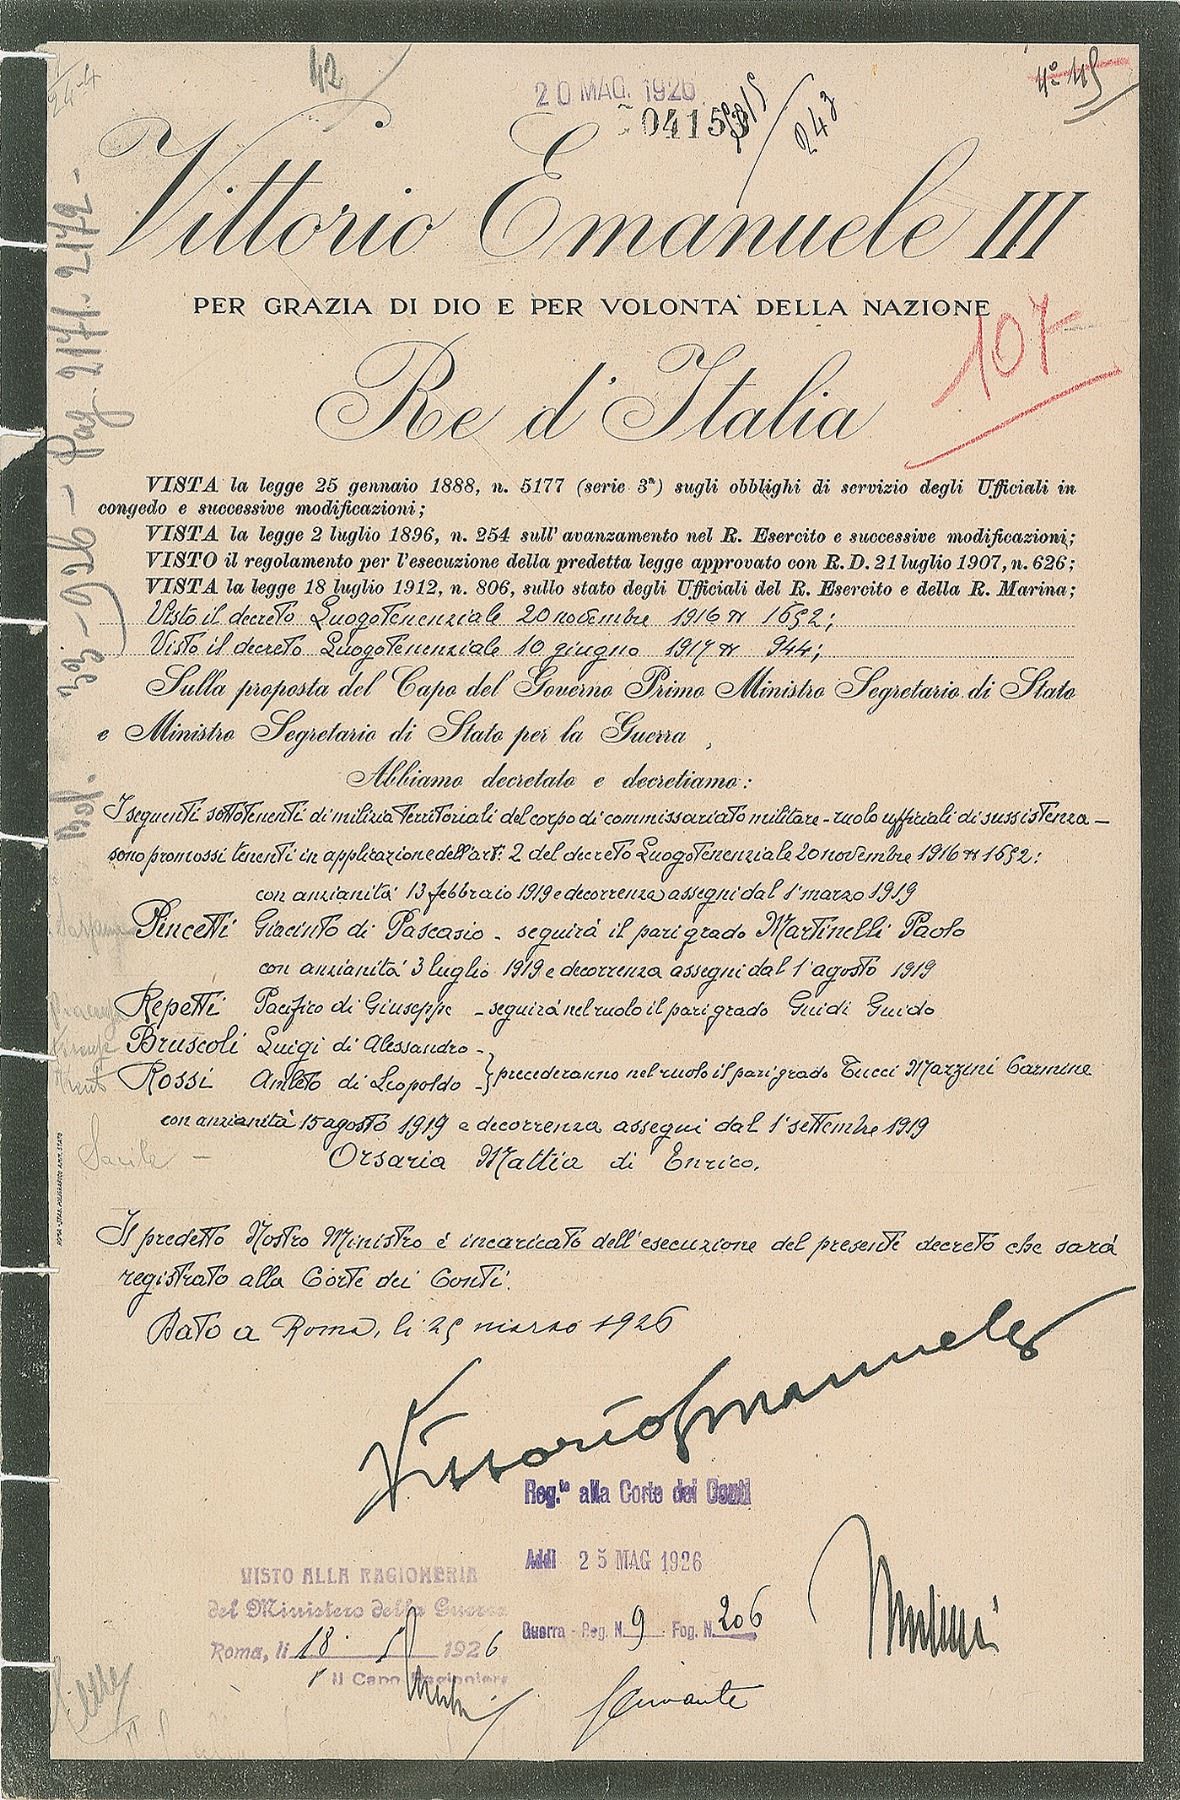 42
20 MAG. 1926
04153
243
Vittorio Emanuele III
PER GRAZIA DI DIO E PER VOLONTA` DELLA NAZIONE
107
Re d'Italia
VISTA la legge 25 gennaio 1888, n. 5177 (serie 3ª) sugli obblighi di servizio degli Ufficiali in
congedo e successive modificazioni;
VISTA la legge 2 luglio 1896, n. 254 sull'avanzamento nel R. Esercito e successive modificazioni;
VISTO il regolamento per l'esecuzione della predetta legge approvato con R. D. 21 luglio 1907, n. 626;
VISTA la legge 18 luglio 1912, n. 806, sullo stato degli Ufficiali del R. Esercito e della R. Marina;
Visto il decreto Luogotenenziale 20 novembre 1916 n 1652;
Visto il decreto Luogotenenziale 10 giugno 1917 n 944;
Sulla proposta del Capo del Governo Primo Ministro Segretario di Stato
e Ministro Segretario di Stato per la Guerra,
Abbiamo decretato e decretiamo:
I seguenti sottotenenti di milizia territoriali del corpo di commissariato militare - ruolo ufficiali di sussistenza -
sono promossi tenenti in applicazione dell'art: 2 del decreto Luogotenenziale 20 novembre 1916 n 1652:
con anzianità 13 febbraio 1919 e decorrenza assegni dal 1° marzo 1919
Pincetti Giacinto di Pascasio - seguirà il pari grado Martinelli Paolo
con anzianità 3 luglio 1919 e decorrenza assegni dal 1° agosto 1919
Repetti Pacifico di Giuseppe - seguirà nel ruolo il pari grado Guidi Guido
Bruscoli Luigi di Alessandro -
Rossi Amleto di Leopoldo - } precederanno nel ruolo il pari grado Tucci Marzini Carmine
con anzianità 15 agosto 1919 e decorrenza assegni dal 1° settembre 1919
Sacile -
Orsaria Mattia di Enrico.
Il predetto Nostro Ministro è incaricato dell'esecuzione del presente decreto che sarà
registrato alla Corte dei Conti.
Dato a Roma, li 25 marzo 1926
Vittorio Emanuele
Reg.to alla Corte dei Conti
Addì 25 MAG 1926
Guerra - Reg. N. 9 Fog. N. 206
VISTO ALLA RAGIONERIA
del Ministero della Guerra
Roma, li 18 5 1926
Il Capo Ragioniere
Mussolini
Bol. 33 - 926 - Pag. 2171. 2172 -